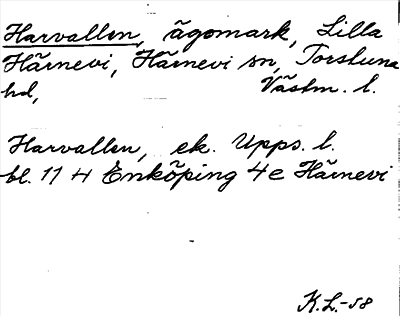 Harvallen, ägomark, Lilla
Härnevi, Härnevi sn, Torstuna
hd, Västm. l.
Harvallen, ek. Upps. l.
bl. 11 H Enköping 4e Härnevi
K.L.-58